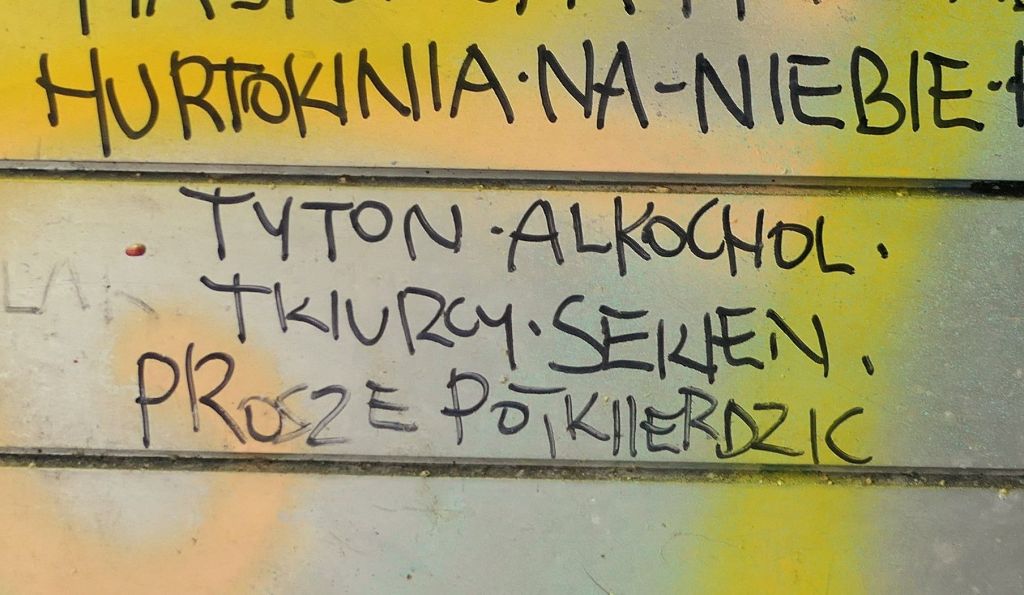 HURTOKINIA·NA-NIEBIE-
TYTON·ALKOCHOL.
TKIURCY·SEKIEN.
PROSZE POTKIIERDZIC